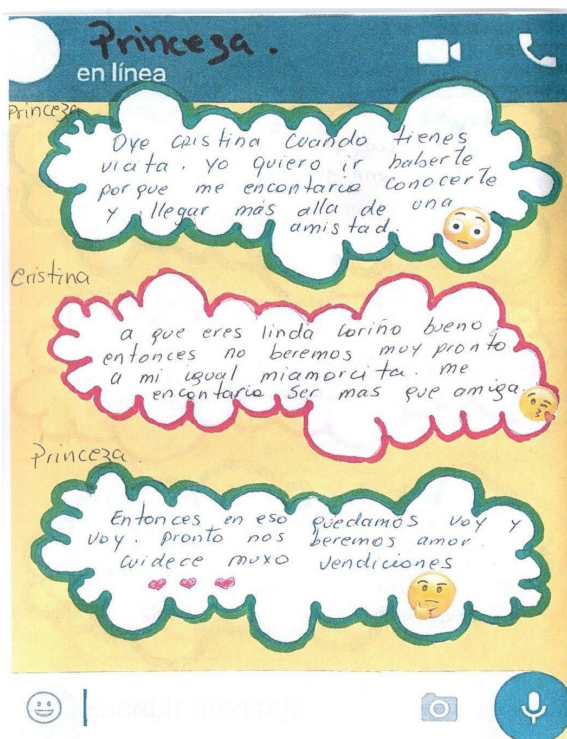 Princeza.
en línea
Princeza
Oye cristina cuando tienes
vicita. yo quiero ir haberte
porque me encontaria conocerte
y llegar más alla de una
amistad.
Cristina
a que eres linda cariño bueno
entonces no beremos muy pronto
a mi igual miamorcita. me
encontaria ser mas que amiga
Princeza.
Entonces en eso quedamos voy y
voy. pronto nos beremos amor.
cuidece muxo vendiciones